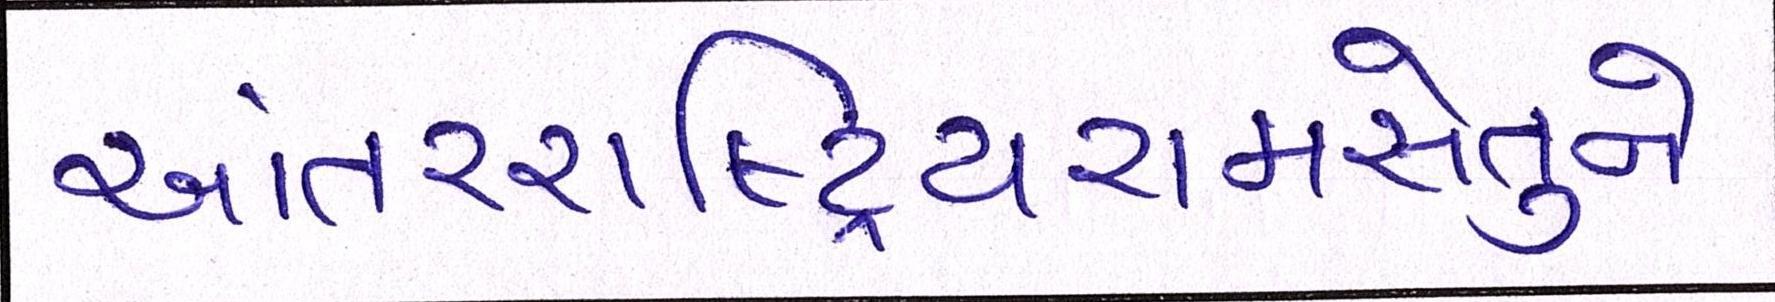 આંતરરાષ્ટ્રિયરામસેતુને